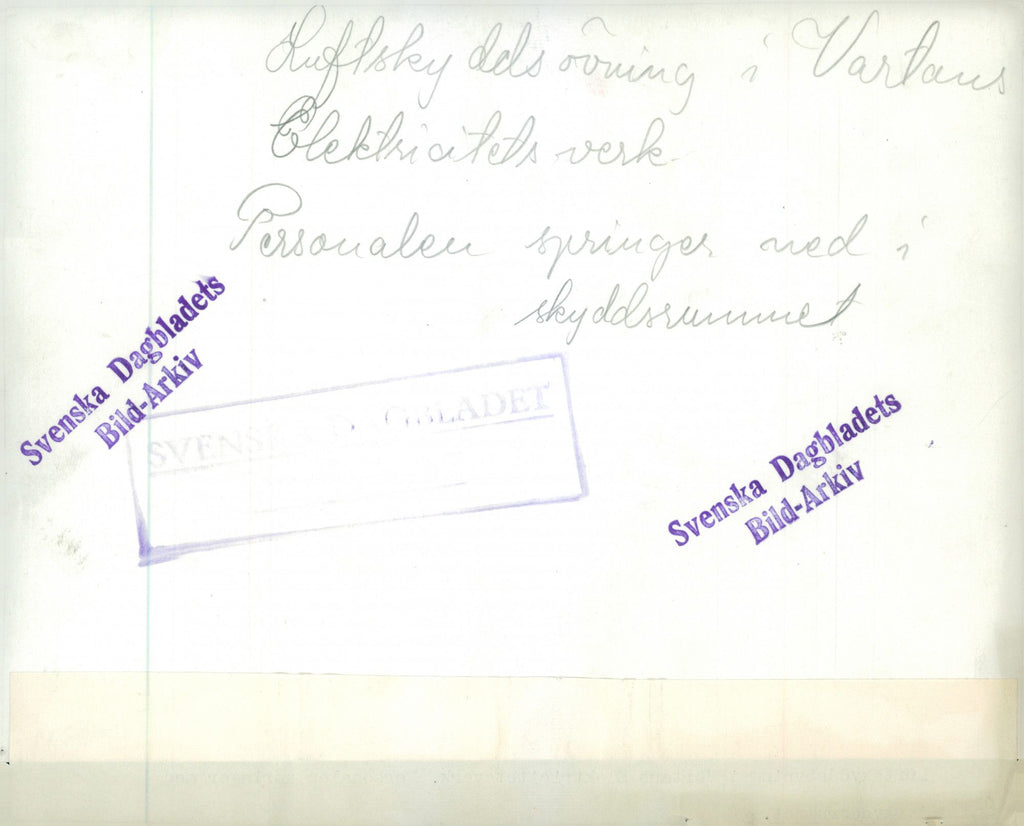 Luftskyddsövning i Vartans
Elektricitets verk
Personalen springer ned i
skyddsrummet
Svenska Dagbladets
Bild-Arkiv
SVENSKA DAGBLADET
Svenska Dagbladets
Bild-Arkiv